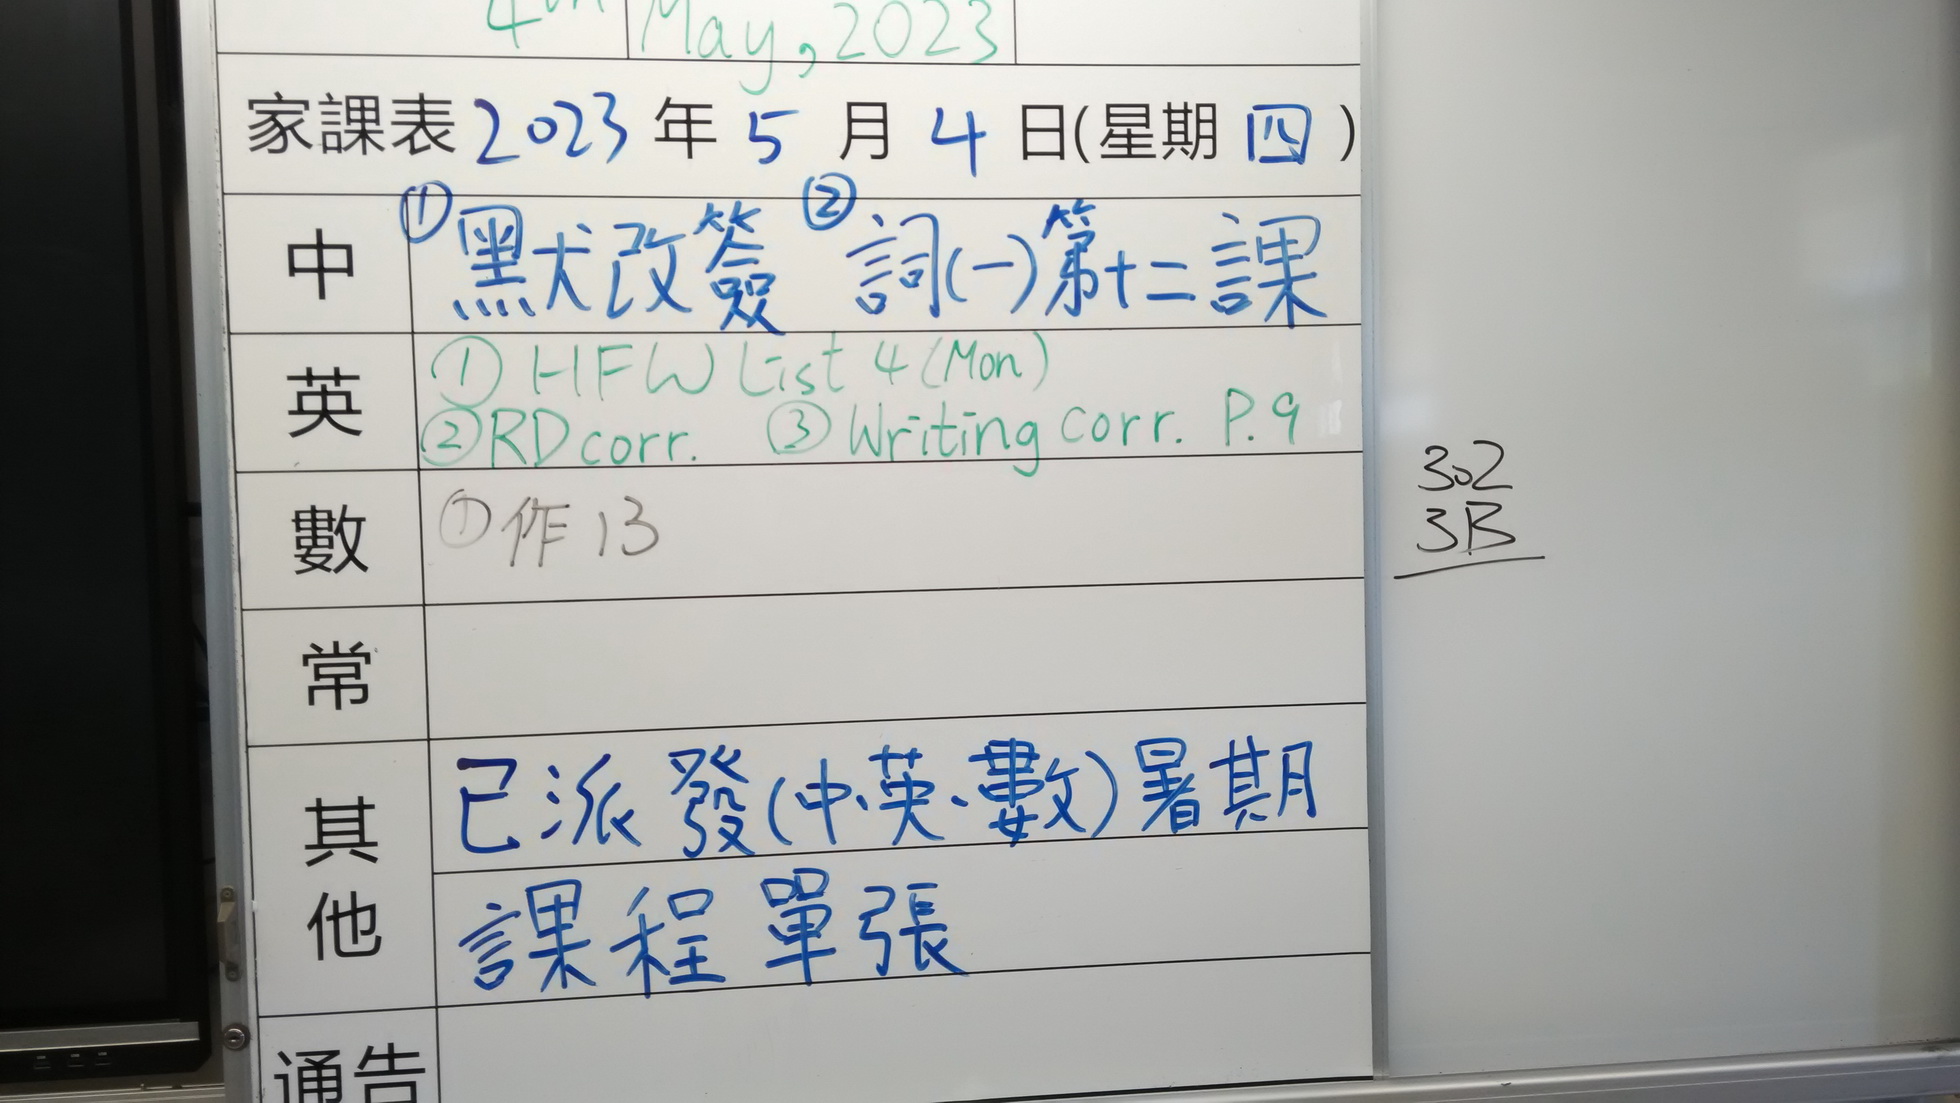 4th May, 2023
家課表 2023 年 5 月 4 日(星期 四 )
中 ①默犬改簽 ②詞(一)第十二課
英 ① HFW List 4 (Mon)
② RD corr. ③ Writing corr. P.9
數 ①作 13
常
其他 已派發(中、英、數)暑期
課程單張
通告
302
3B